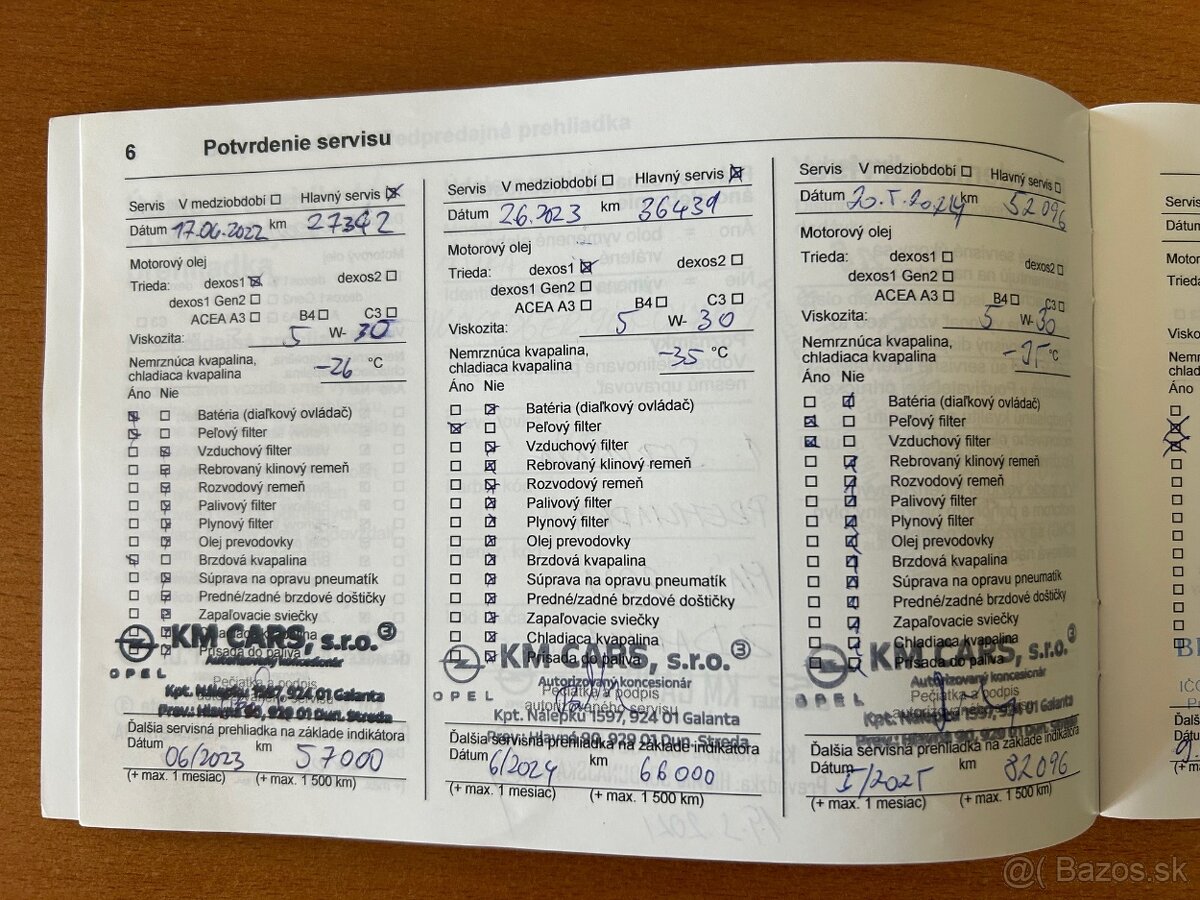 6 Potvrdenie servisu
Servis V medziobdobí Hlavný servis
Dátum 17.06.2022 km 27342
Motorový olej
Trieda: dexos1 dexos2
dexos1 Gen2
ACEA A3 B4 C3
Viskozita: 5 W- 30
Nemrznúca kvapalina,
chladiaca kvapalina -26 °C
Áno Nie
Batéria (diaľkový ovládač)
Peľový filter
Vzduchový filter
Rebrovaný klinový remeň
Rozvodový remeň
Palivový filter
Plynový filter
Olej prevodovky
Brzdová kvapalina
Súprava na opravu pneumatík
Predné/zadné brzdové doštičky
Zapaľovacie sviečky
KM CARS, s.r.o. 3
Prísada do paliva
Autorizovaný koncesionár
OPEL
Pečiatka a podpis
Kpt. Nálepku 1597, 924 01 Galanta
Prev.: Hlavná 90, 929 01 Dun. Streda
Ďalšia servisná prehliadka na základe indikátora
Dátum 06/2023 km 57000
(+ max. 1 mesiac) (+ max. 1 500 km)
Servis V medziobdobí Hlavný servis
Dátum 26.2023 km 36439
Motorový olej
Trieda: dexos1 dexos2
dexos1 Gen2
ACEA A3 B4 C3
Viskozita: 5 W- 30
Nemrznúca kvapalina,
chladiaca kvapalina -35 °C
Áno Nie
Batéria (diaľkový ovládač)
Peľový filter
Vzduchový filter
Rebrovaný klinový remeň
Rozvodový remeň
Palivový filter
Plynový filter
Olej prevodovky
Brzdová kvapalina
Súprava na opravu pneumatík
Predné/zadné brzdové doštičky
Zapaľovacie sviečky
Chladiaca kvapalina
KM CARS, s.r.o. 3
Prísada do paliva
Autorizovaný koncesionár
OPEL
Pečiatka a podpis
autorizovaného servisu
Kpt. Nálepku 1597, 924 01 Galanta
Prev.: Hlavná 90, 929 01 Dun. Streda
Ďalšia servisná prehliadka na základe indikátora
Dátum 6/2024 km 66000
(+ max. 1 mesiac) (+ max. 1 500 km)
Servis V medziobdobí Hlavný servis
Dátum km 52096
Motorový olej
Trieda: dexos1 dexos2
dexos1 Gen2
ACEA A3 B4 C3
Viskozita: 5 W- 30
Nemrznúca kvapalina,
chladiaca kvapalina °C
Áno Nie
Batéria (diaľkový ovládač)
Peľový filter
Vzduchový filter
Rebrovaný klinový remeň
Rozvodový remeň
Palivový filter
Plynový filter
Olej prevodovky
Brzdová kvapalina
Súprava na opravu pneumatík
Predné/zadné brzdové doštičky
Zapaľovacie sviečky
Chladiaca kvapalina
KM CARS, s.r.o. 3
Prísada do paliva
Autorizovaný koncesionár
OPEL
Pečiatka a podpis
Kpt. Nálepku 1597, 924 01 Galanta
Prev.: Hlavná 90, 929 01 Dun. Streda
Ďalšia servisná prehliadka na základe indikátora
Dátum km 82096
(+ max. 1 mesiac) (+ max. 1 500 km)
Servis
Dátum
Áno
Bazos.sk